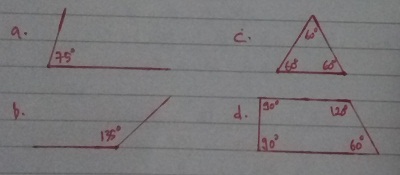 a.
75°
b.
135°
c.
60°
60° 60°
d.
90° 120°
90° 60°